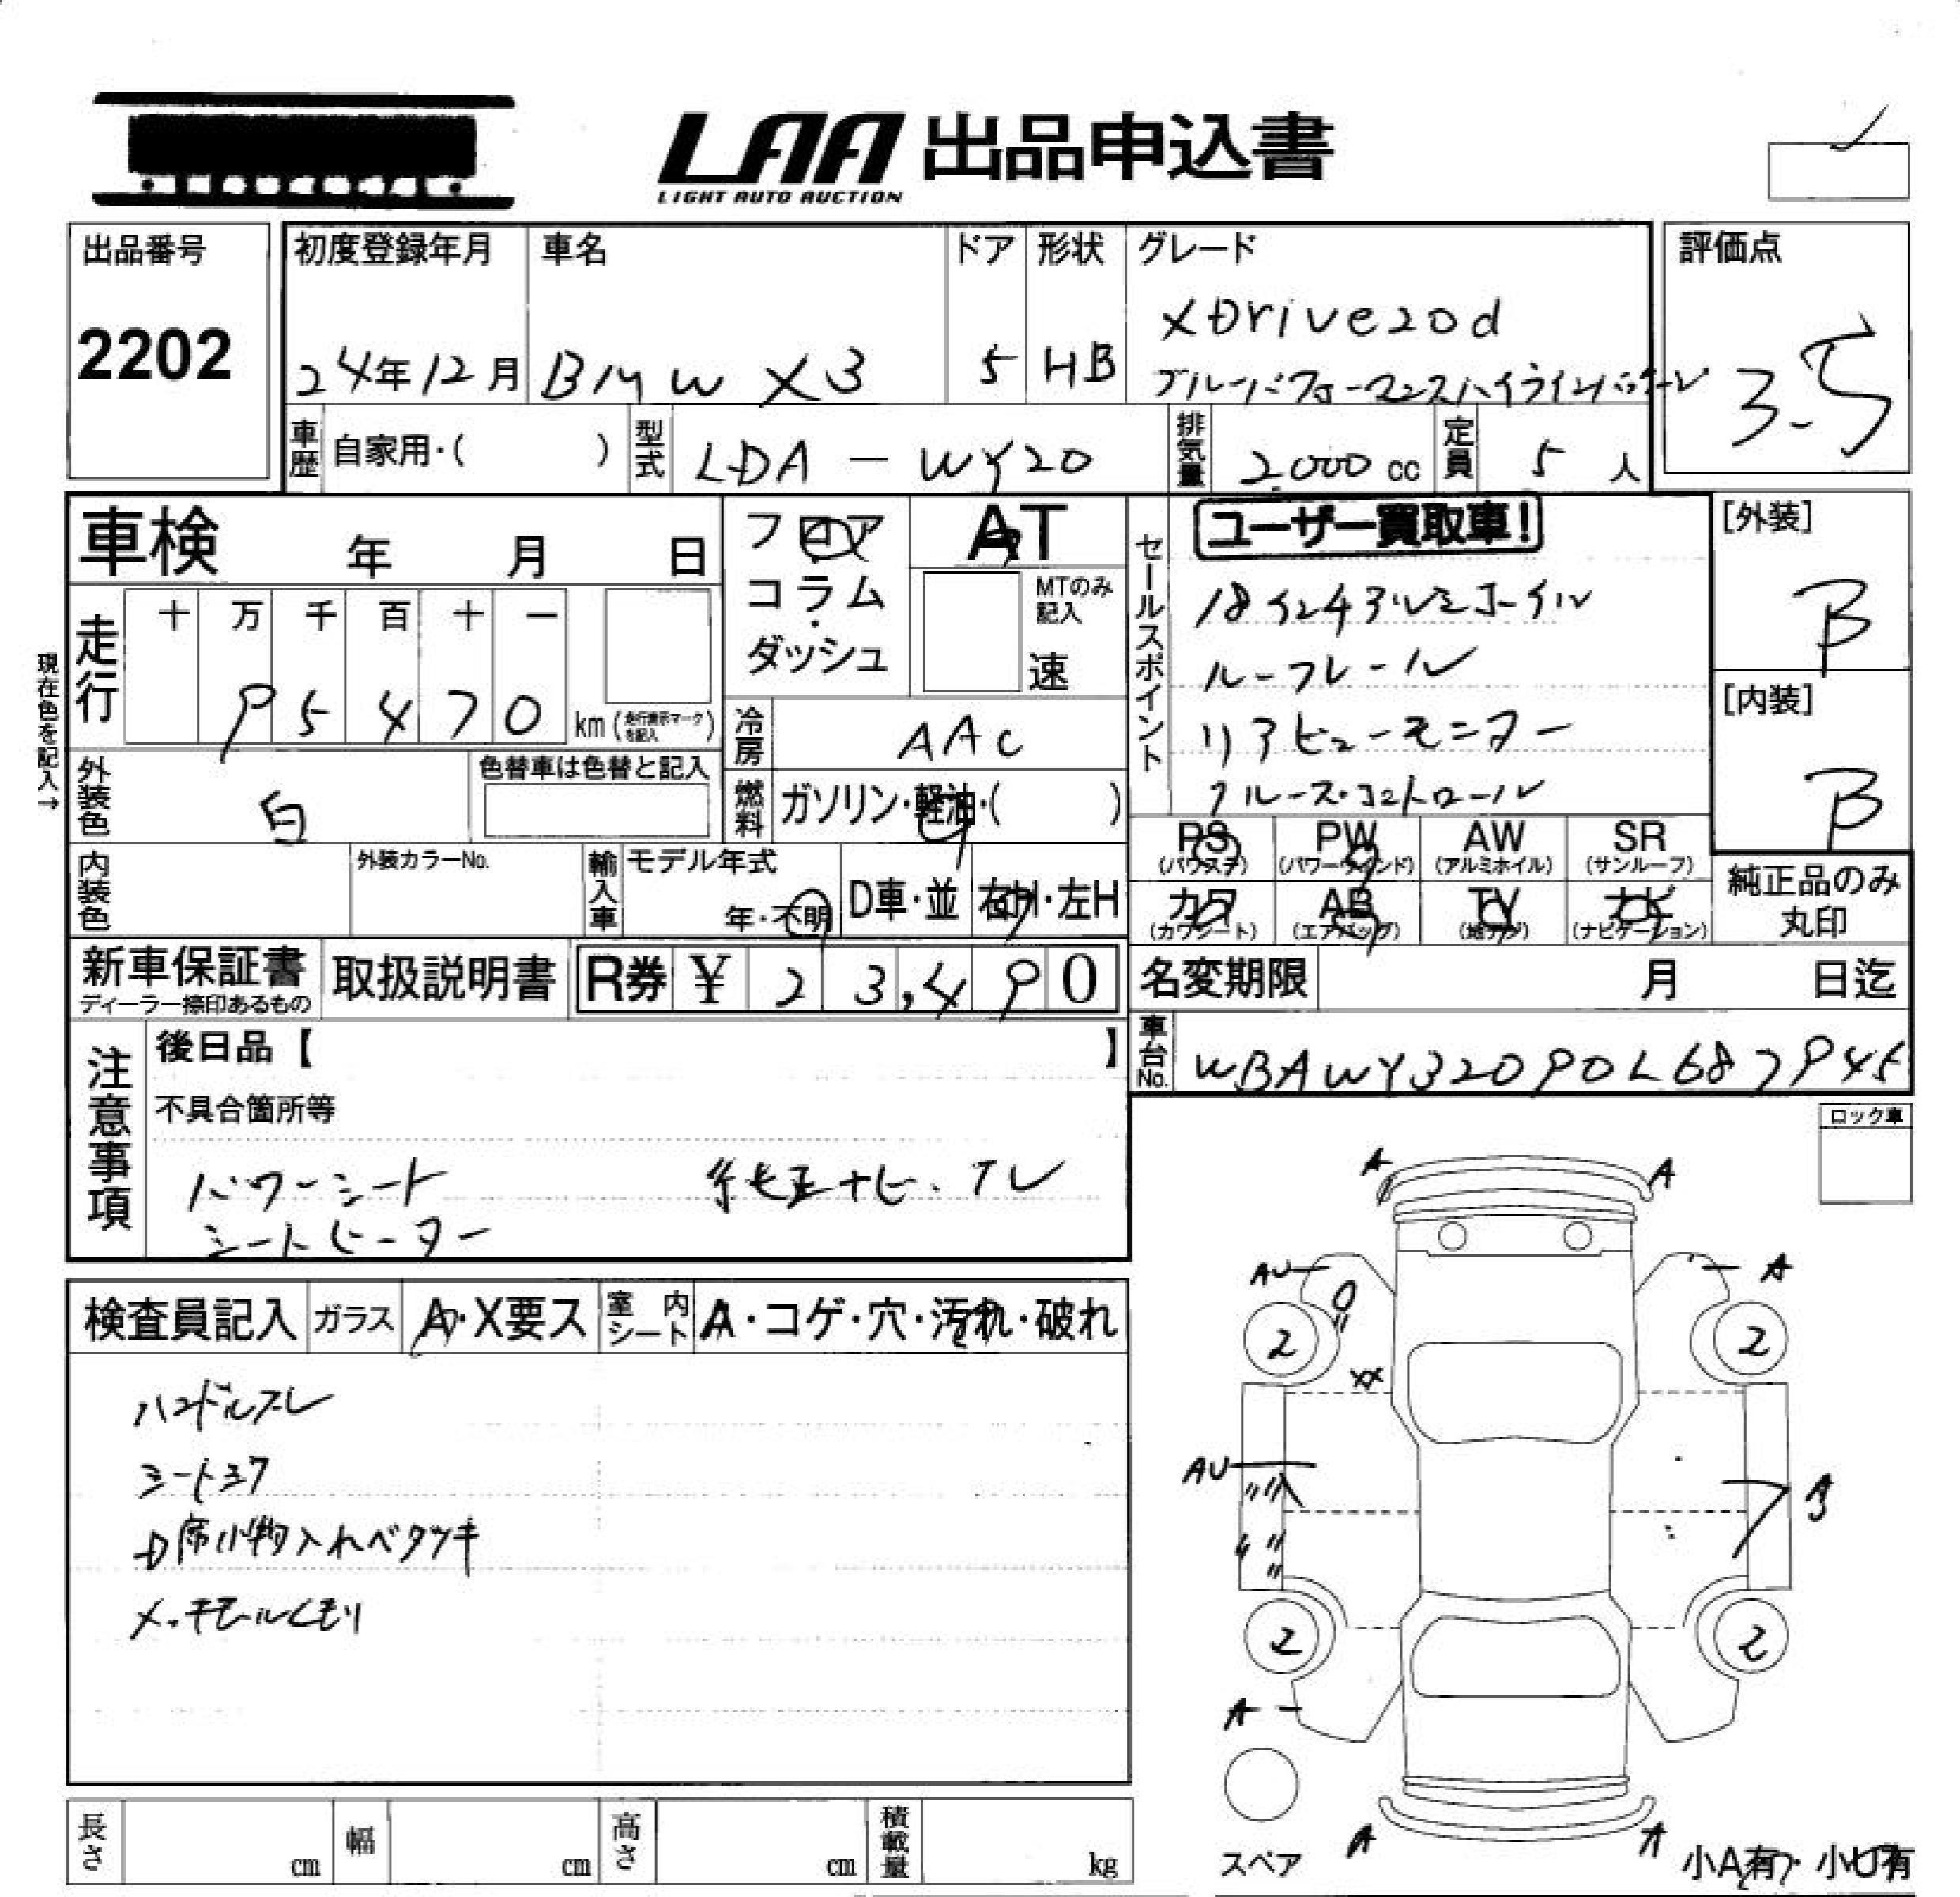 LAA 出品申込書
LIGHT AUTO AUCTION
出品番号
2202
初度登録年月
24年12月
車名
BMW X3
ドア
5
形状
HB
グレード
XDrive20d
ブルーパフォーマンスハイラインパッケージ
評価点
3.5
車歴 自家用・( )
型式 LDA-WY20
排気量 2.000 cc
定員 5 人
車検 年 月 日
フロア・コラム・ダッシュ
AT
MTのみ記入
速
セールスポイント
ユーザー買取車!
18インチアルミホイル
ルーフレール
リアビューモニター
クルーズ・コントロール
[外装]
B
[内装]
B
現在色を記入→
走行 十 万 千 百 十 一
95470 km (走行表示マークを記入)
冷房 AAC
外装色 白
色替車は色替と記入
燃料 ガソリン・軽油・( )
PS (パワステ)
PW (パワーウインド)
AW (アルミホイル)
SR (サンルーフ)
カワ (カワシート)
AB (エアバッグ)
TV (地デジ)
ナビ (ナビゲーション)
純正品のみ丸印
内装色
外装カラーNo.
輸入車 モデル年式
年・不明
D車・並
右H・左H
新車保証書
ディーラー捺印あるもの
取扱説明書
R券 ¥ 23,490
名変期限 月 日迄
車台No. WBAWY32090L687945
注意事項
後日品【 】
不具合箇所等
パワーシート 純正ナビ、テレ
シートヒーター
ロック車
検査員記入 ガラス A・X要ス 室内シート A・コゲ・穴・汚れ・破れ
ハンドルスレ
シートシワ
D席小物入れベタツキ
メッキモールくもり
A A
AU A
2 2
XX
AU
A
2 2
A
スペア
A A
小A有・小U有
長さ cm
幅 cm
高さ cm
積載量 kg